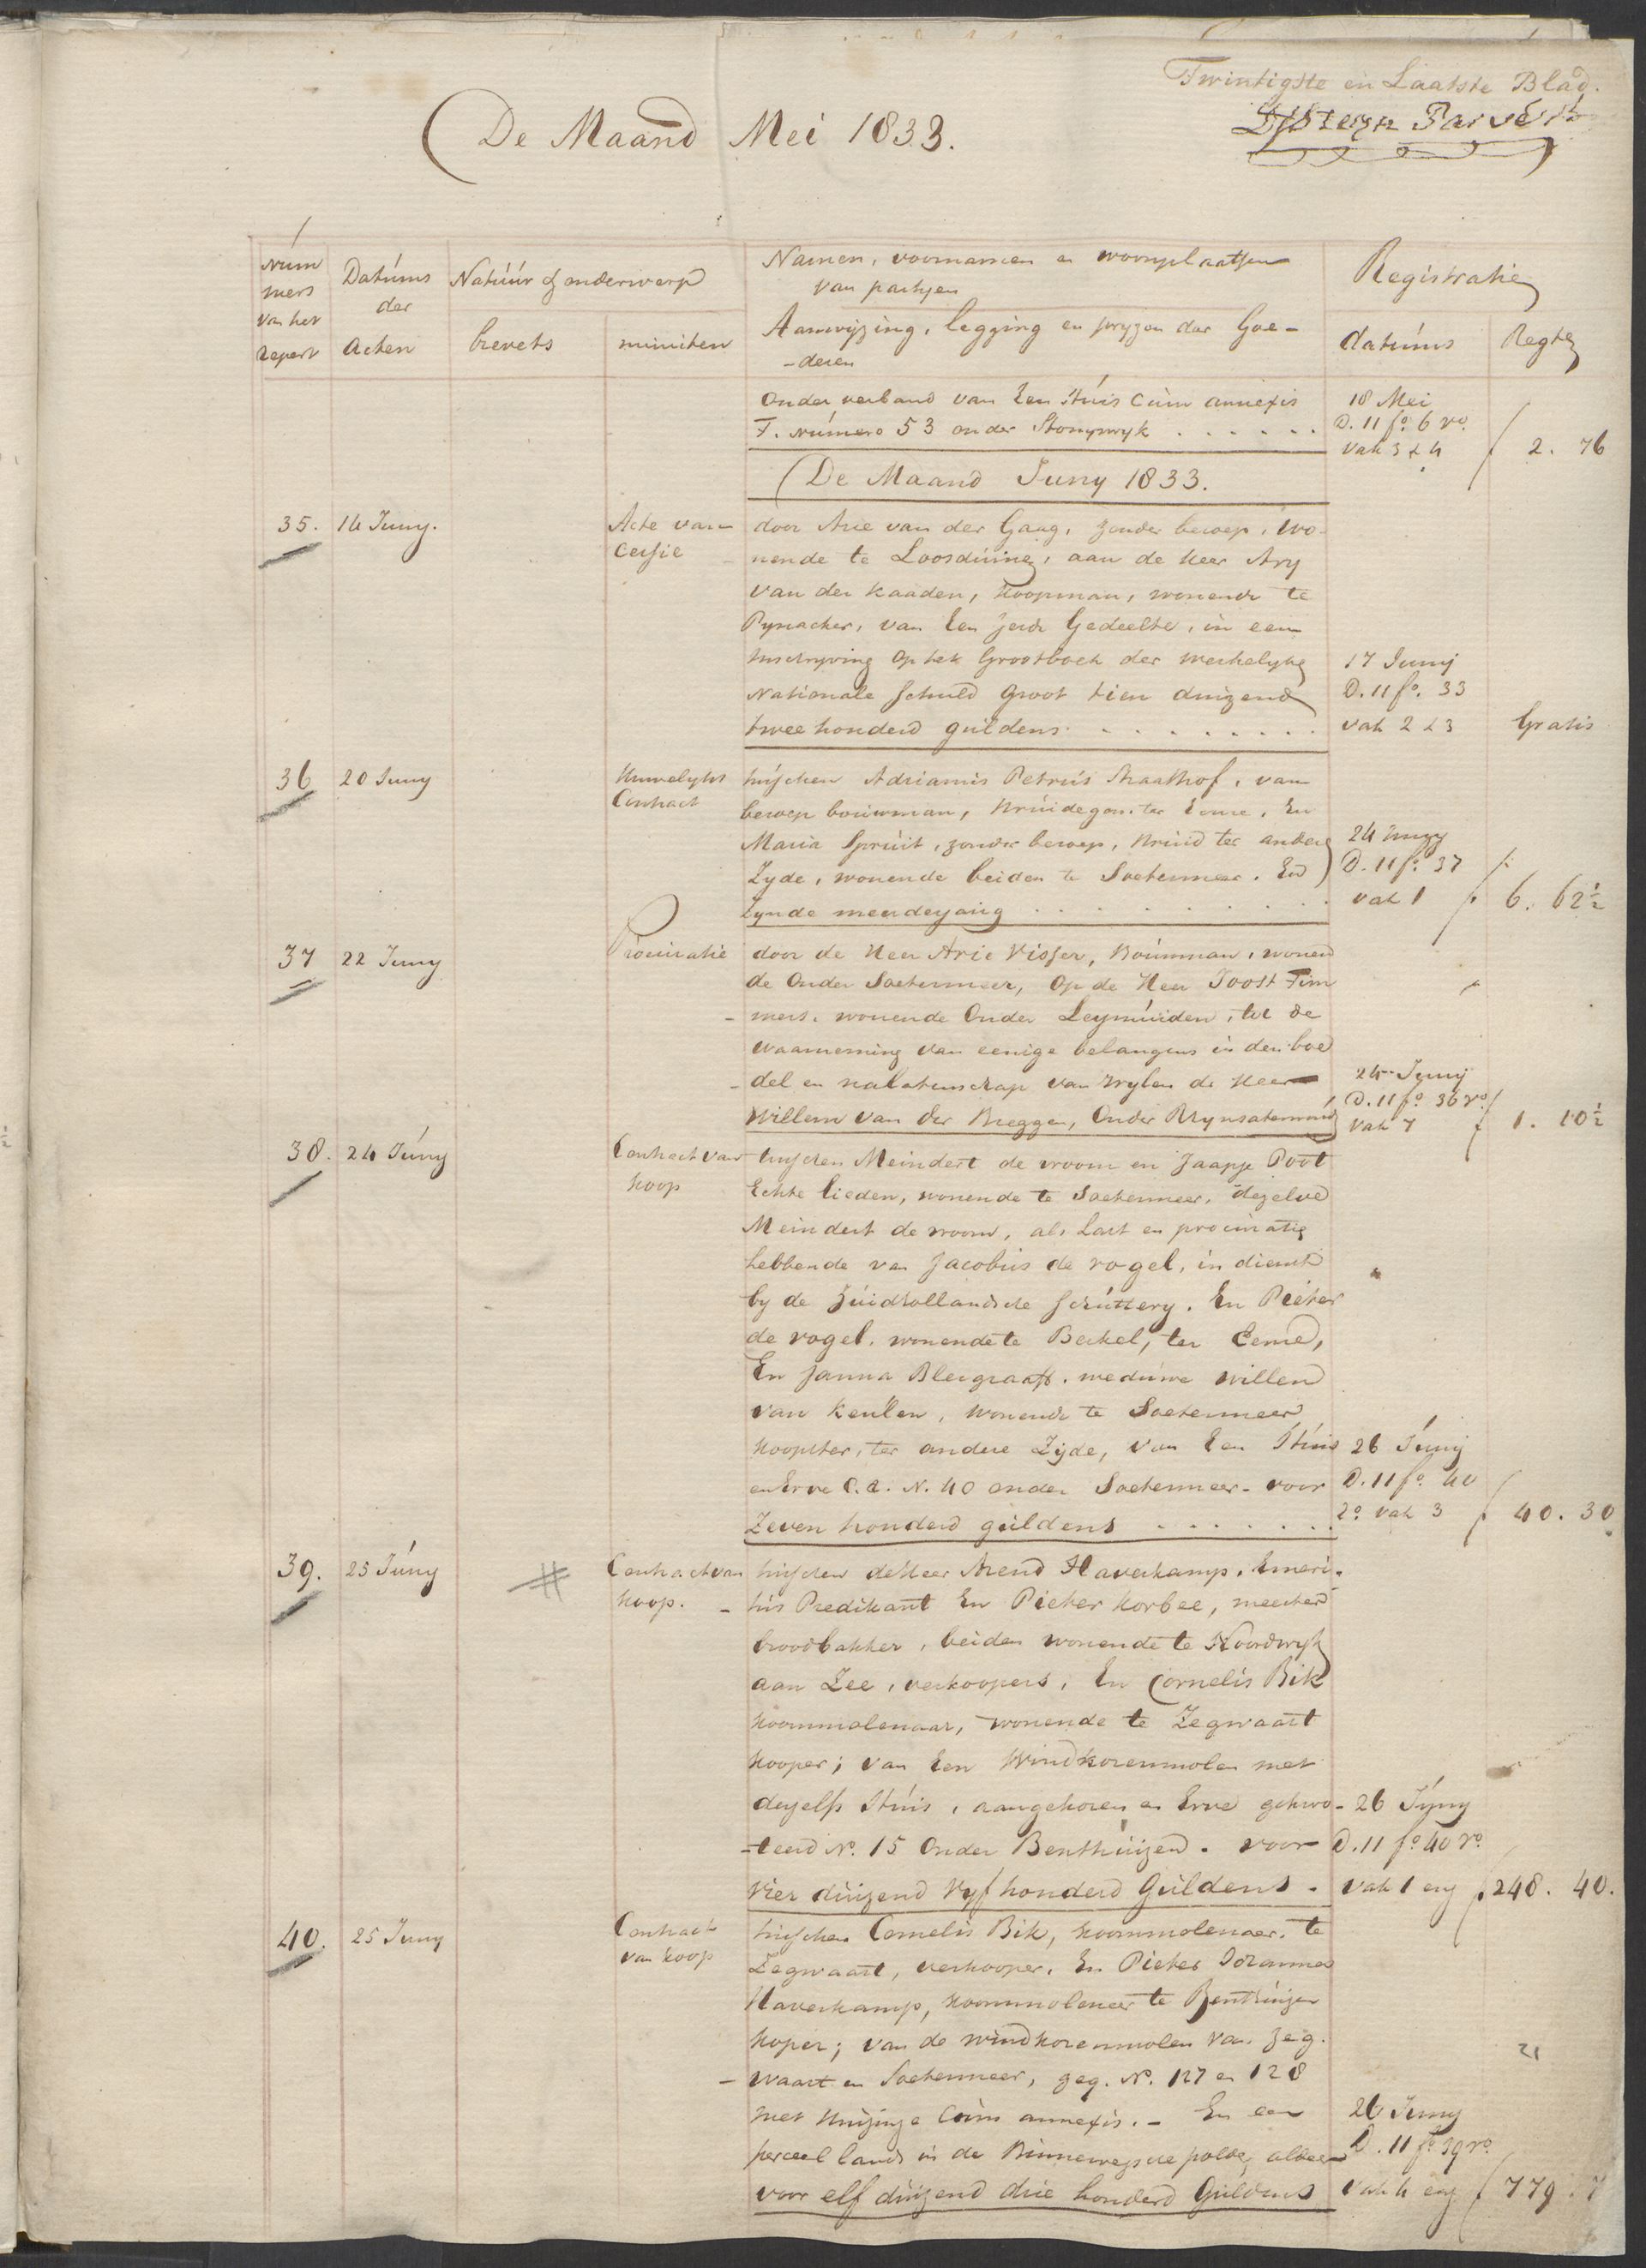 Twintigste en Laatste Blad.
De Maand Mei 1833.
Num
mers
van het
repert
Datums
der
Acten
Natuur of onderwerp
brevets
minuten
Namen, voornamen en woonplaatsen
van partyen
Aanwyzing, legging en pryzen der Goe-
-deren
Registratie
datums
Regten
Onder verband van Een Huis Cum annexis
F. Numero 53 onder Stompwyk . . . . . .
18 Mei
D. 11 fo. 6 vo.
vak 3 & 4
f 2. 76
De Maand Juny 1833.
35. 14 Juny.
Acte van
Cessie
door Arie van der Gaag, zonder beroep, wo-
nende te Loosduinen, aan de Heer Ary
van der Kaaden, Koopman, wonende te
Pynacker, van Een zesde Gedeelte, in een
Inschryving op het Grootboek der werkelyke
Nationale Schuld groot tien duizend
twee honderd guldens . . . . . . . .
17 Junij
D. 11 fo. 33
vak 2 & 3
Gratis
36 20 Juny
Huwelyks
Contract
tusschen Adrianus Petrus Straathof, van
beroep bouwman, Bruidegom ter Eenre, En
Maria Spruit, zonder beroep, Bruid ter andere
Zyde, wonende beiden te Soetermeer. End
Zynde meerderjarig . . . . . . . . . .
24 Juny
D. 11 fo. 37
vak 1
f 6. 62½
37 22 Juny
Procuratie
door de Heer Arie Visser, Bouwman, wonen
de Onder Soetermeer, Op de Heer Joost Tim
- mers, wonende Onder Leymuiden, tot de
waarneming van eenige belangens in den boe
- del en nalatenschap van wylen de Heer
Willem van der Breggen, Onder Rynsaterwoude
24 Juny
D. 11 fo. 36 vo.
Vak 7
f 1. 10½
38. 24 Juny
Contract van
Koop
tusschen Meindert de vroom en Jaapje Poot
Echte lieden, wonende te Soetermeer, dezelve
Meindert de vroom, als Last en procuratie
hebbende van Jacobus de vogel, in dienst
by de Zuidhollandsche schuttery. En Pieter
de vogel, wonende te Berkel, ter Eenre,
En Janna Bleigraaft. weduwe willem
van Keulen, wonende te Soetermeer
Koopster, ter andere Zijde, van Een Huis
en Erve C.a. N. 40 onder Soetermeer - voor
Zeven honderd guldens . . . . . . .
26 Junij
D. 11 fo. 40
vo vak 3
f 40. 30
39. 25 Juny
#
Contract van
Koop.
tusschen de Heer Arend Haverkamp, Emeri-
- tus Predikant En Pieter Korbee, meester
broodbakker, beiden wonende te Noordwyk
aan Zee, verkoopers, En Cornelis Bik
Koornmolenaar, wonende te Zegwaart
Kooper; van Een Windkorenmolen met
deszelfs Huis, aangehoren en Erve gekwo-
-teerd No. 15 Onder Benthuizen. voor
Vier duizend Vyf honderd Guldens.
26 Juny
D. 11 fo 40 vo.
vak 1 en
f 248. 40.
40. 25 Juny
Contract
van Koop
tusschen Cornelis Bik, Koornmolenaar, te
Zegwaart, verkooper, En Pieter Johannes
Haverkamp, Koornmolenaar te Benthuizen
Koper; van de windkorenmolen van Zeg-
- waart en Soetermeer, geq. No. 127 en 128
met Huizinge Cum annexis. - En een
perceel lands in de Binnenwegsche polder, alles
voor elf duizend drie honderd Guldens
26 Juny
D. 11 fo. 39 vo.
Vak 4 en
f 779. 7
21